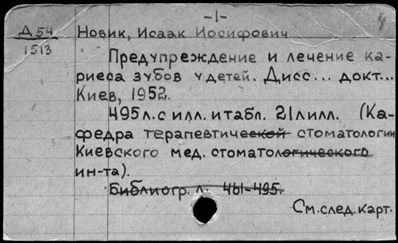 -1-
Д 54 Новик, Исаак Иосифович
1513
Предупреждение и лечение ка-
риеса зубов у детей. Дисс... докт...
Киев, 1952.
495 л. с илл. и табл. 21 л илл. (Ка-
федра терапевтической стоматологии
Киевского мед. стоматологического
ин-та).
Библиогр. л. 461-495.
См. след. карт.